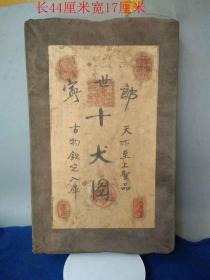 长44厘米宽17厘米
郎世寧
天下至上圣品
十犬图
古物钦定入库